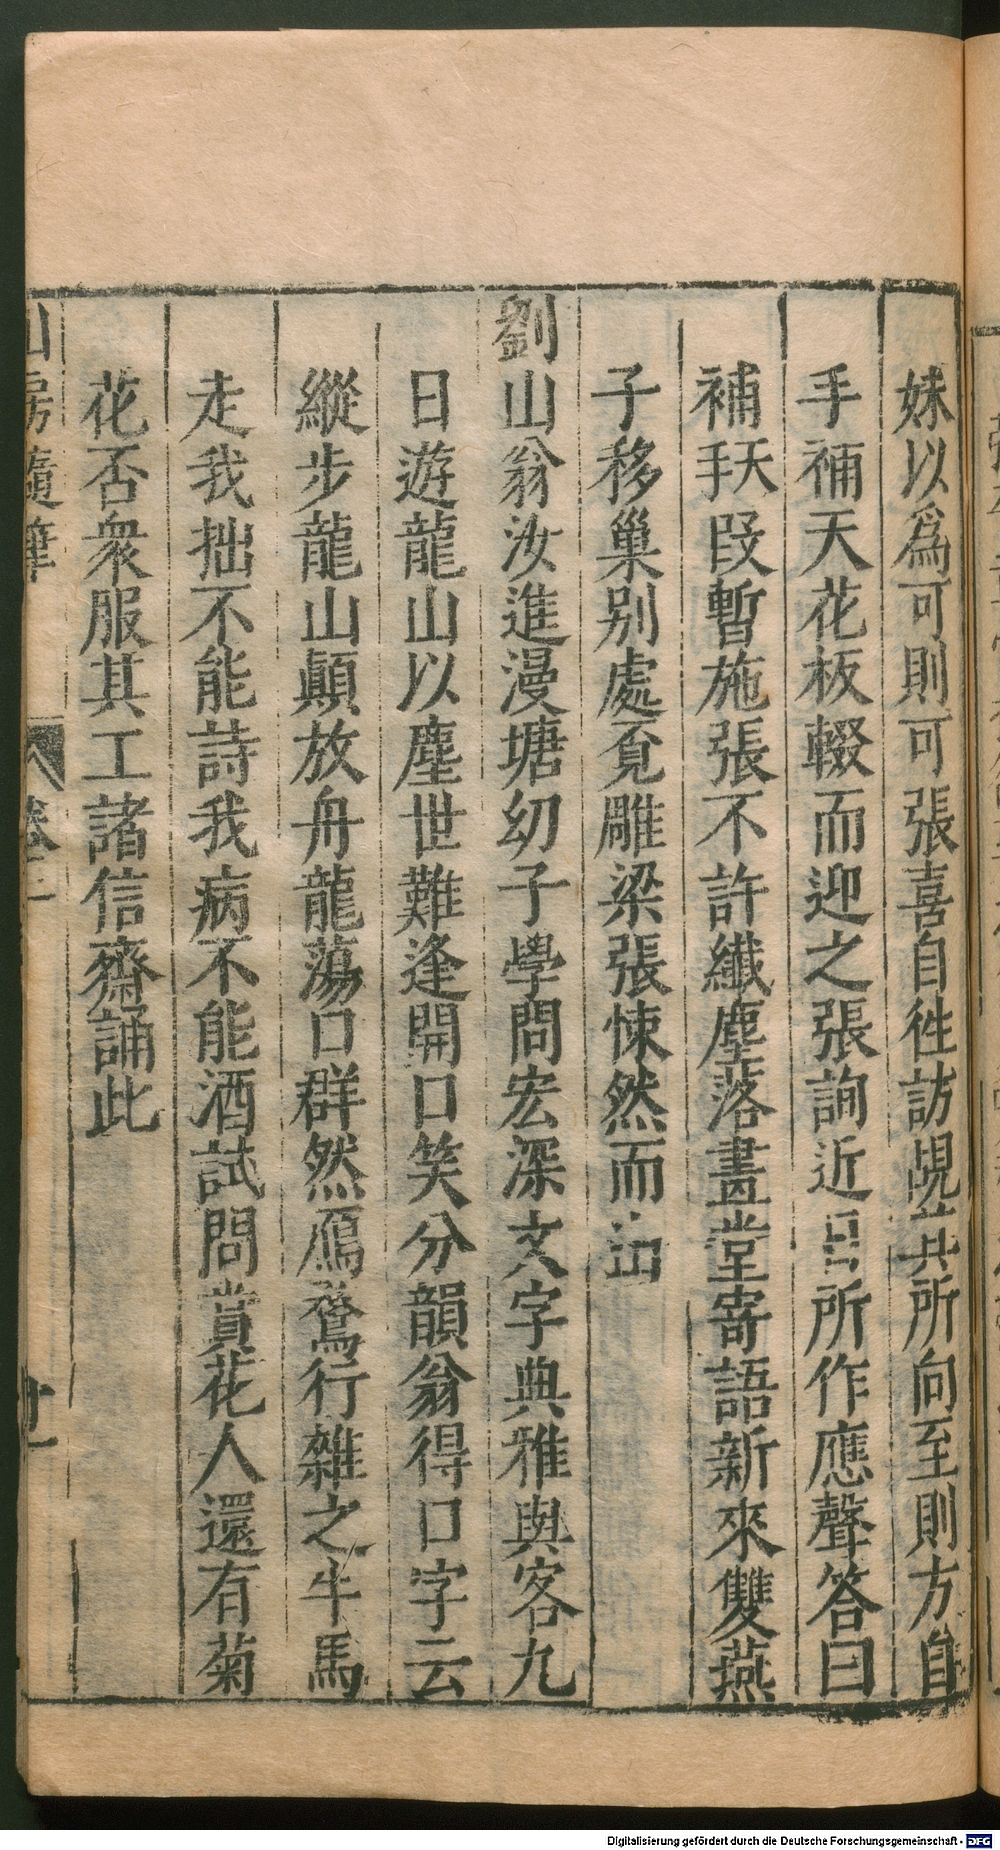 妹以爲可則可張喜自徃訪覘其所向至則方自
手補天花板輟而迎之張詢近日所作應聲答曰
補天手段暫施張不許纖塵落畫堂寄語新來雙燕
子移巢别處覔雕梁張悚然而出
劉山翁汝進漫塘幼子學問宏深文字典雅與客九
日遊龍山以塵世難逢開口笑分韻翁得口字云
縱步龍山顛放舟龍蕩口群然鴈鶩行雜之牛馬
走我拙不能詩我病不能酒試問賞花人還有菊
花否衆服其工諸信齋誦此
山房隨筆 卷三
Digitalisierung gefördert durch die Deutsche Forschungsgemeinschaft - DFG